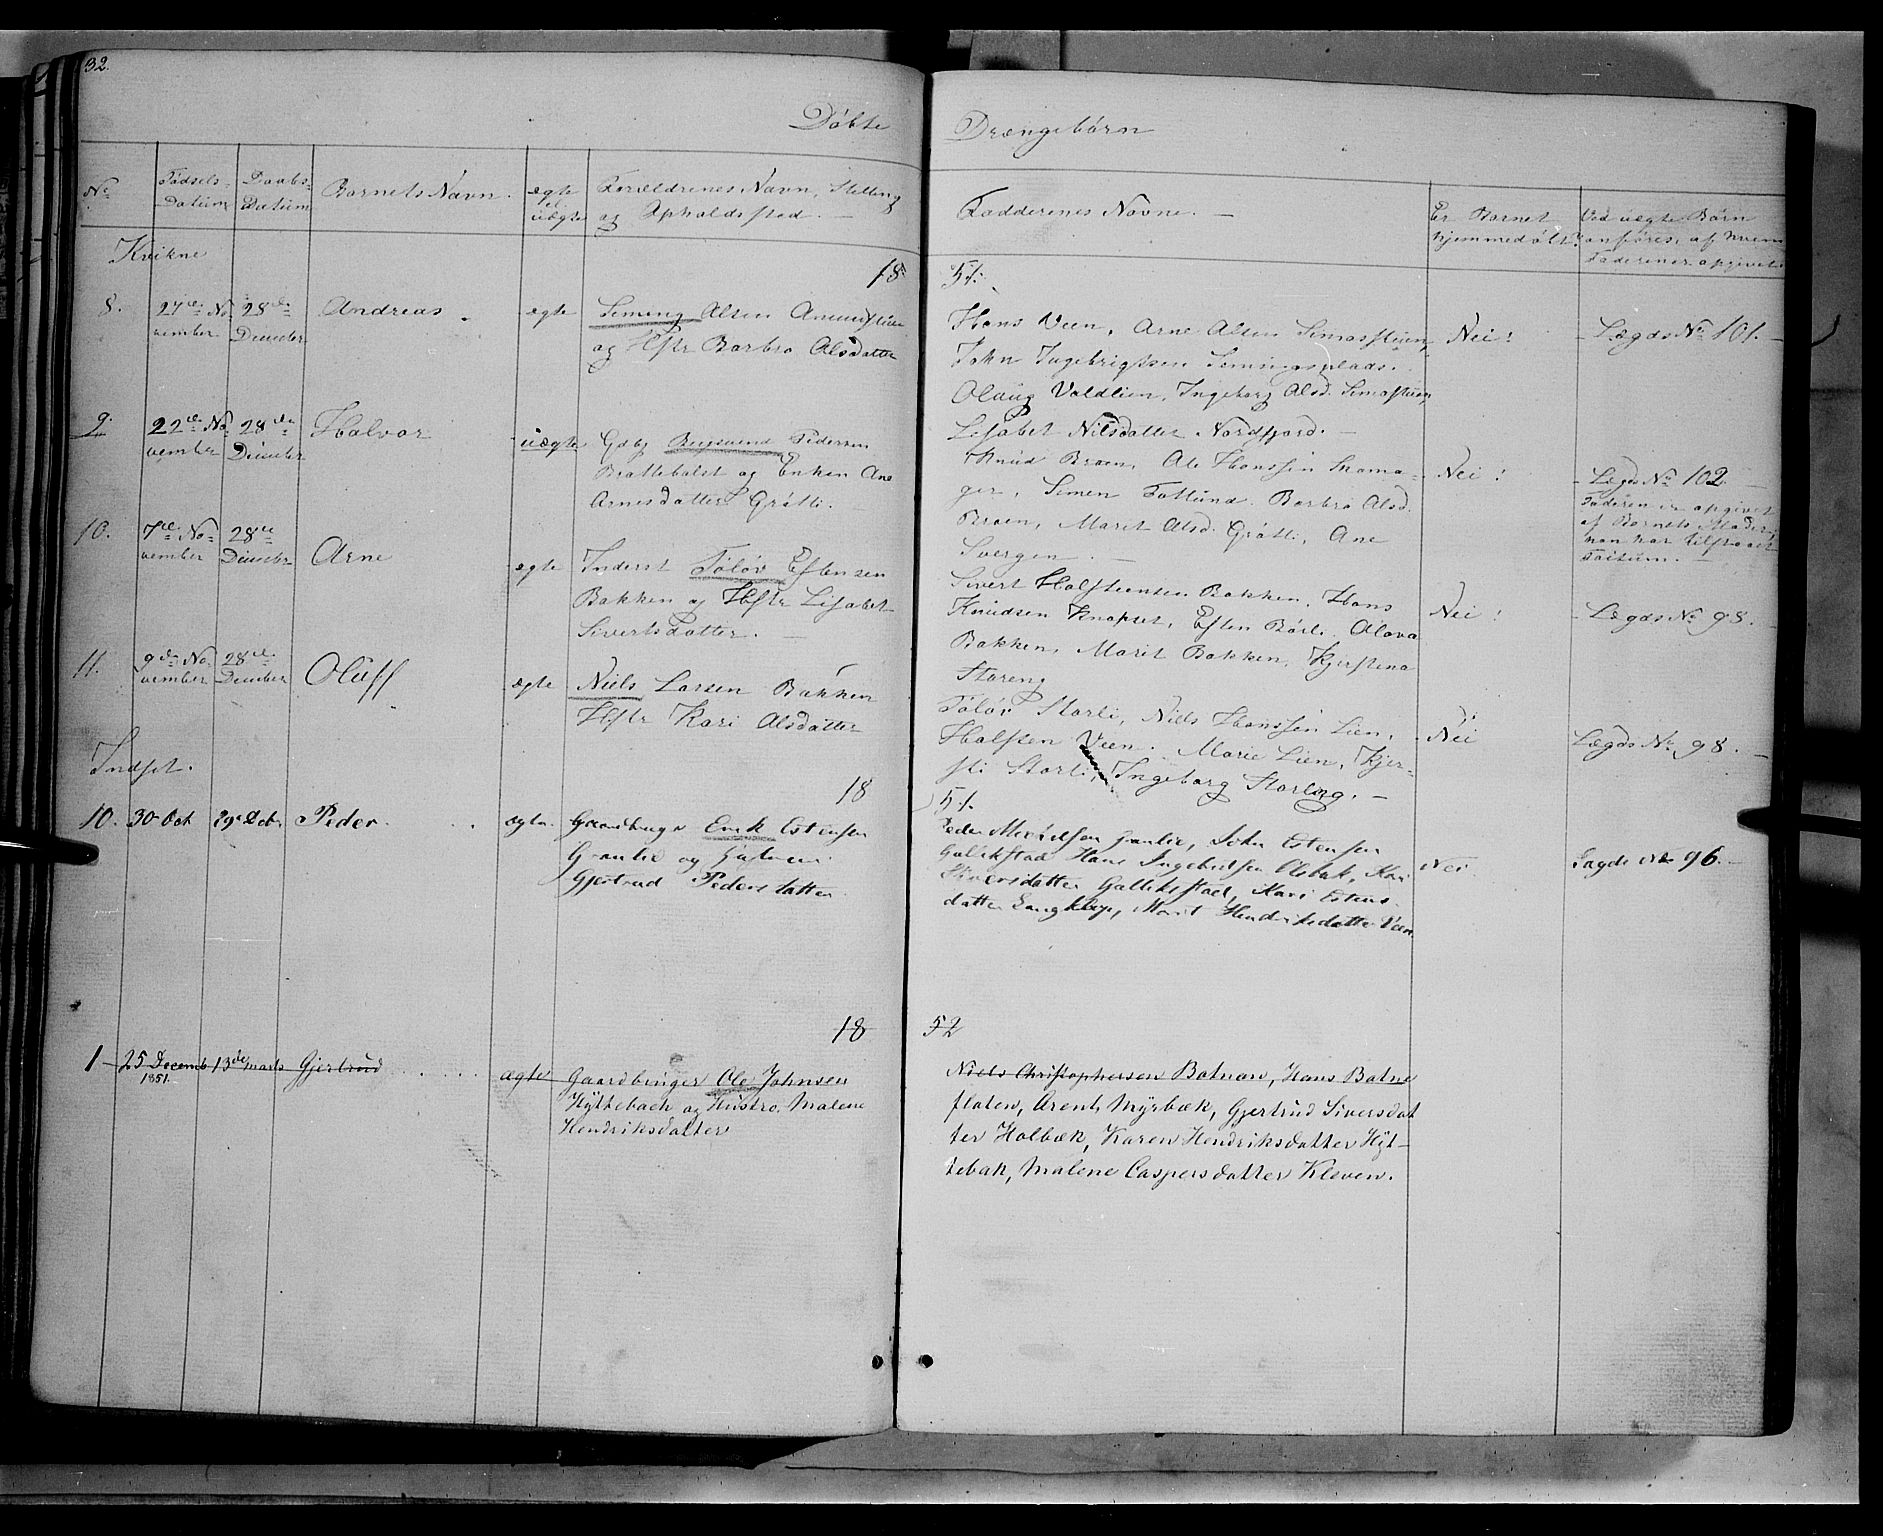 32.
Döbte Drængebörn
No Födsels-Datum Daabs-Datum Barnets Navn. egte el. uægte Forældrenes Navn, Stilling og Opholdssted. Faddernes Navne. Er Barnet hjemmedöbt? Ved uægte Börn anföres, af hvem Faderen er opgivet
Kvikne
18 51.
8. 27de November 28de December Andreas egte Simeng Olsen
og Hstr Barbro Olsdatter
Hans Veen, Arne Olsen
John Ingebrigtsen
Oluug Voldlien, Ingeborg Olsd.
Lisabet Nilsdatter Nordfjord.
Nei! Lægds No 101.
9. 22de November 28de December Halvor uægte Gdbg Pedersen
Brattebalet og Enken Ane
Arnesdatter Gröttli.
Knud Broen, Ole Hanssen Skoma-
ger, Simen Barbro Olsd.
Broen, Marit Olsd. Gröttli, Ane
Nei! Lægds No 102.
Faderen er opgivet
af Barnets Moder,
han har tilstaaet
10. 7de November 28de December Arne egte Inderst Tólöv Estensen
Bakken og Hstr Lisabet
Sivertsdatter.
Sivert Halstensen Bakken, Hans
Knudsen Esten Börli, Olava
Bakken, Marit Bakken, Kjerstena
Storeng
Nei! Lægds No 98.
11. 9de November 28de December Oluff ægte Niels Larsen Bakken
Hstr Kari Olsdatter
Tólöv Storli, Niels Hanssen Lien,
Halsten Veen. Marie Lien, Kjer-
sti Storli, Ingeborg Storeng.
Nei Lægds No 98.
Indset.
18 51
10. 30 Oct 29 Dcb. Peder ægte Gaardbruger Erik Estensen
og
Gjertrud Pedersdatter
Peder John Estensen
Hans Ingebritsen Kari
Siversdatter Kari Estens-
datter Marit Hendriksdatter Veen.
Nei Lagde No 96.
18 52
1 25 Decemb 1851. 13de Marts Gjertrud ægte Gaardbruger Ole Johnsen
Hyttebach og Hustro. Malene
Hendriksdatter
Niels Christophersen Botnan, Hans Botne
floten, Arent Myrbæk, Gjertrud Siversdat
ter Holbæk, Karen Hendriksdatter Hyt-
tebak, Malene Caspersdatter Kleven.